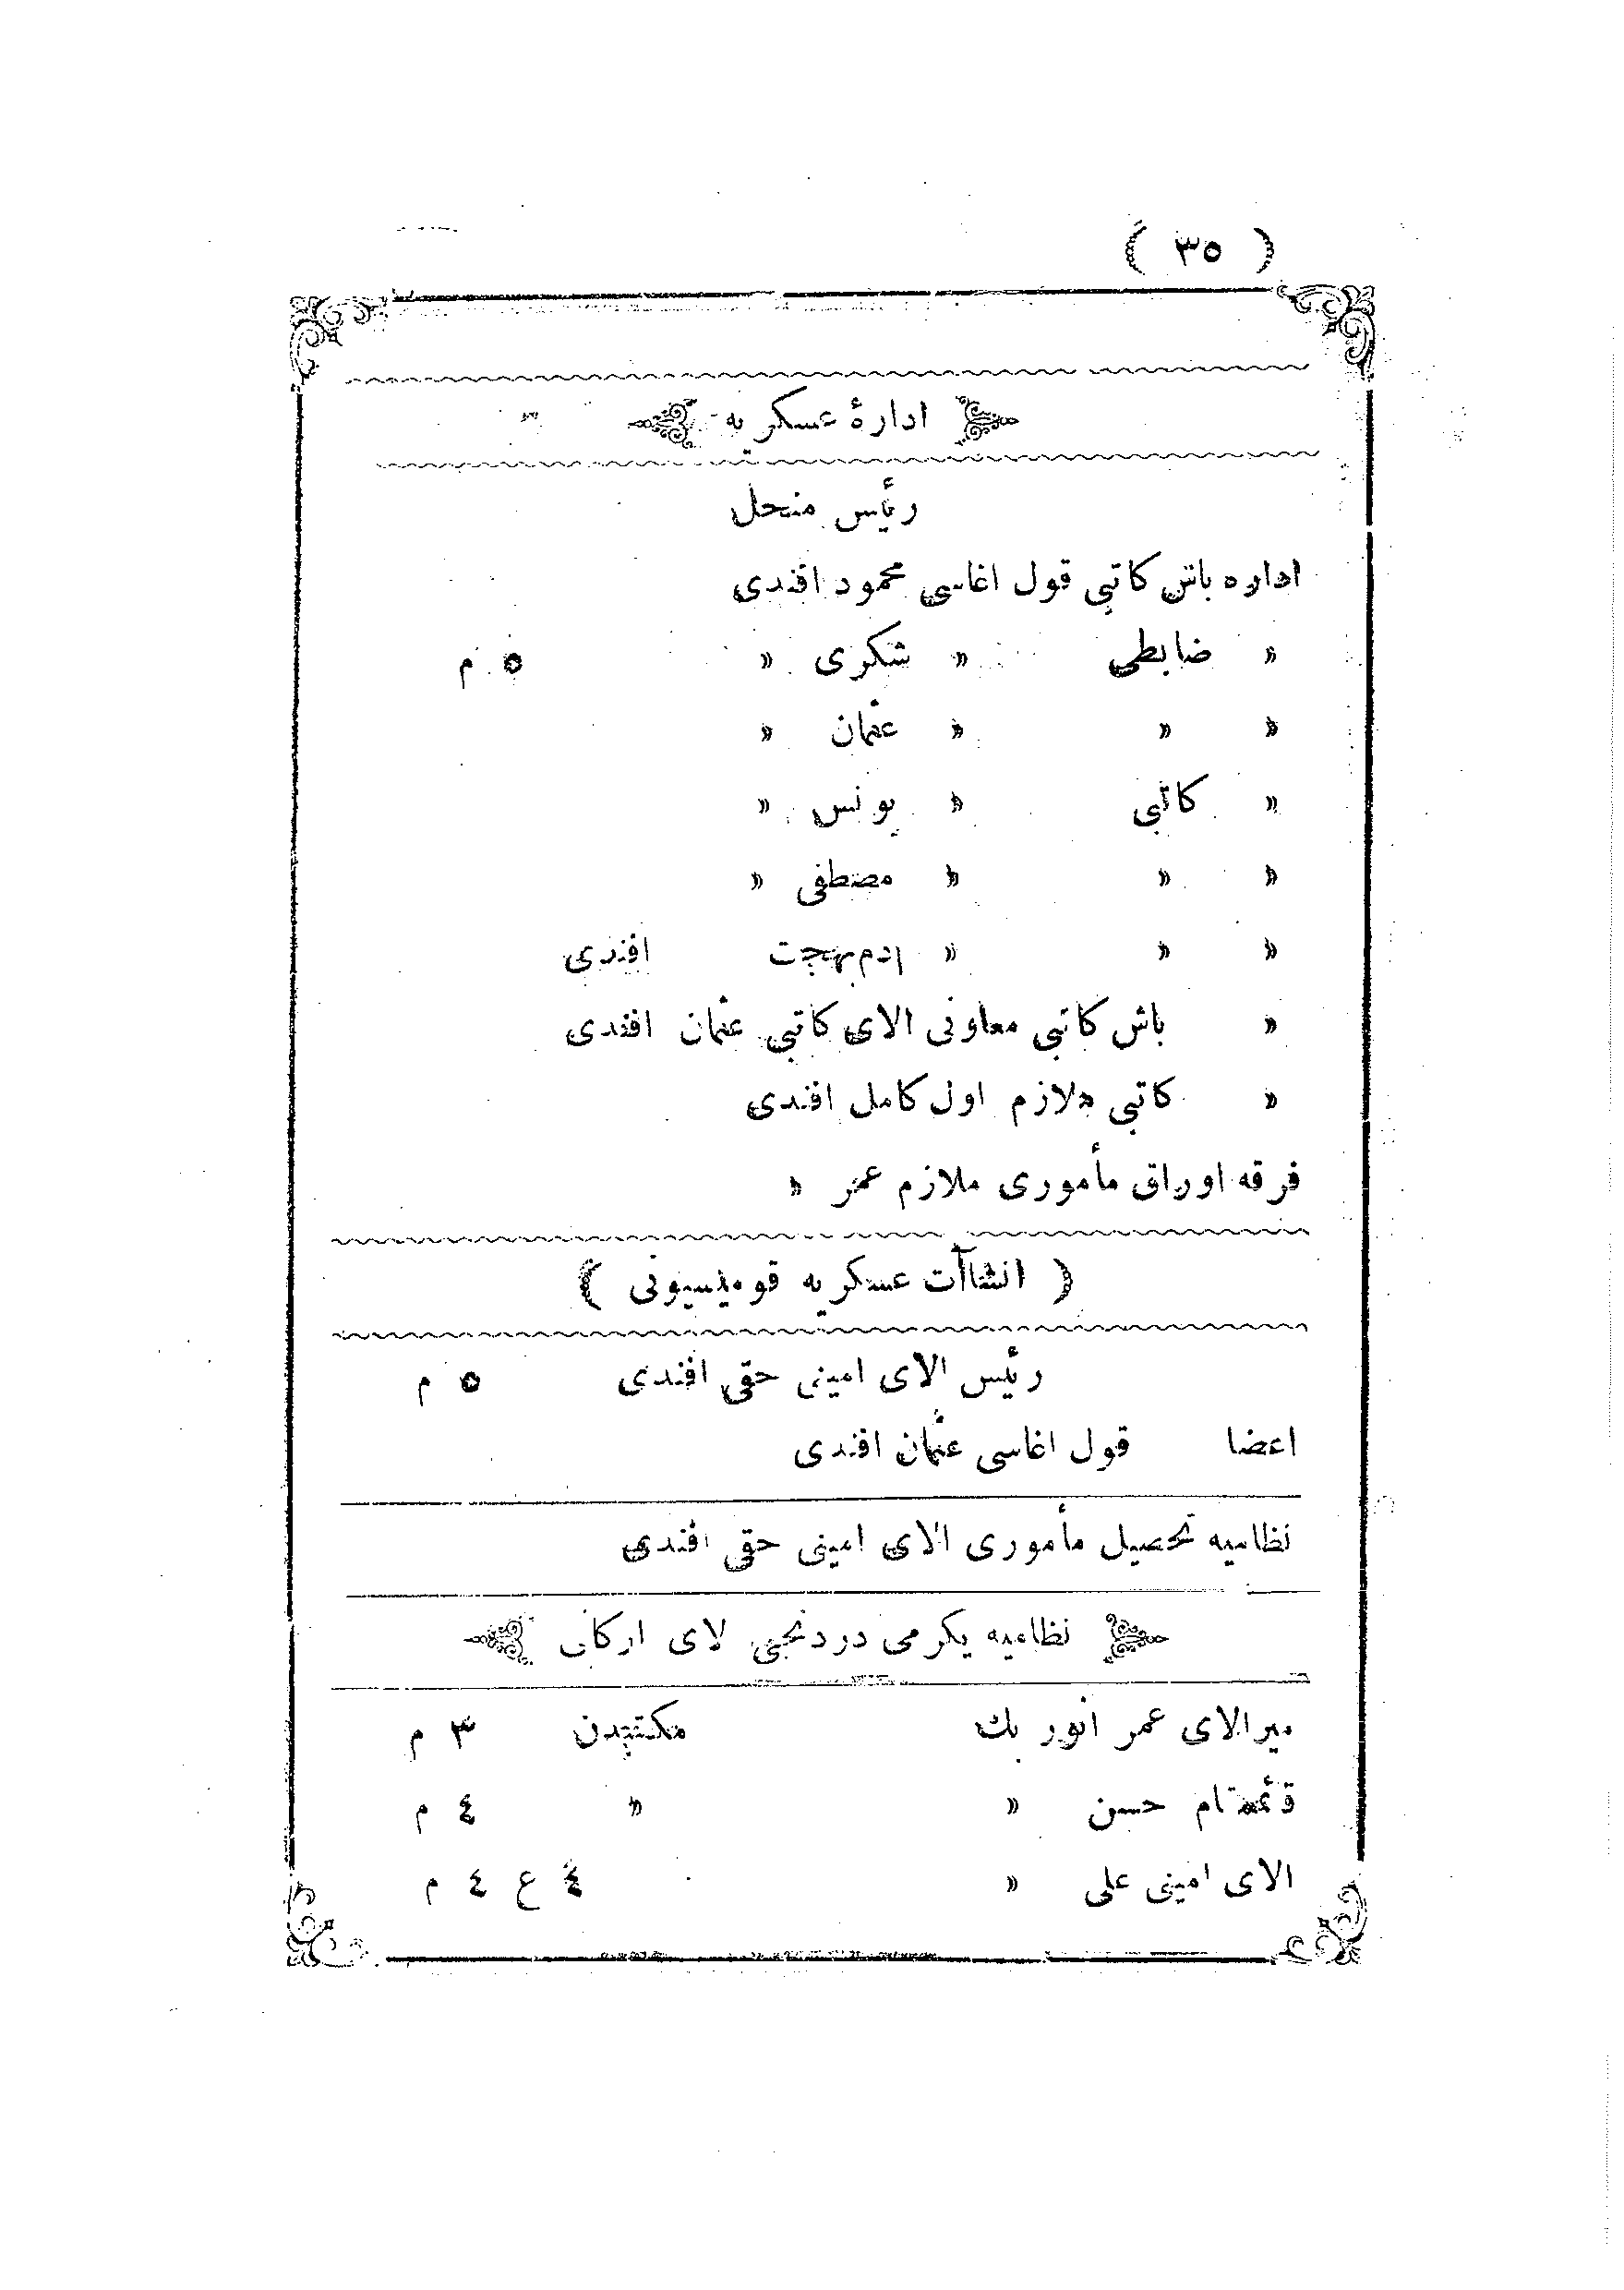 ( ٣٥ )
ادارهٔ عسكريه
رئيس منحل
اداره باش كاتبى قول اغاسى محمود افندى
« ضابطى « شكرى « ٥ م
« « « عثمان «
« كاتبى « يونس «
« « « مصطفى «
« « « ادم بهجت افندى
« باش كاتبى معاونى الاى كاتبى عثمان افندى
« كاتبى ملازم اول كامل افندى
فرقه اوراق مأمورى ملازم عمر «
( انشاآت عسكريه قوميسيونى )
رئيس الاى امينى حقى افندى ٥ م
اعضا قول اغاسى عثمان افندى
نظاميه تحصيل مأمورى الاى امينى حقى افندى
نظاميه يكرمى دردنجى لاى اركانى
ميرالاى عمر انور بك مكتبدن ٣ م
قائمقام حسن « « ٤ م
الاى امينى على « ٤ ع ٤ م